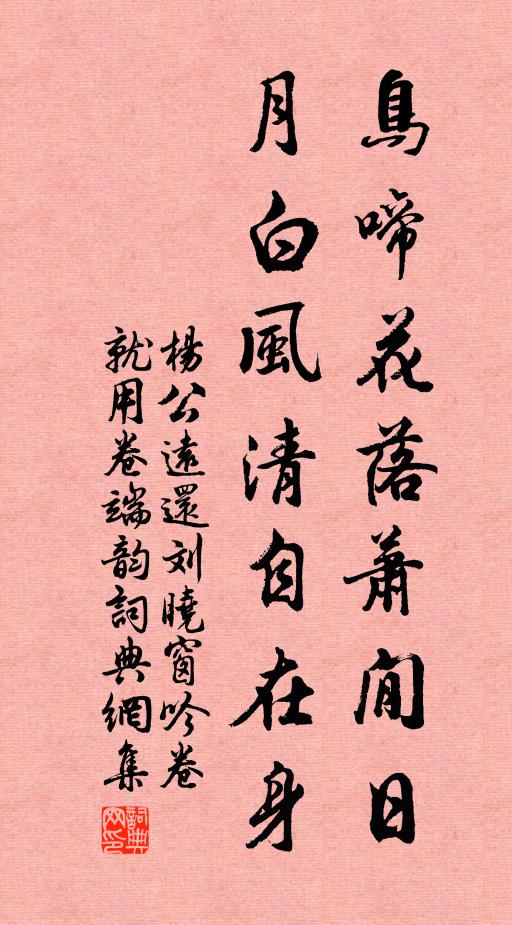 鳥啼花落蕭閒日
月白風清自在身
楊公遠還刘曉窗吟卷
就用卷端韵詞典網集
詞典网印